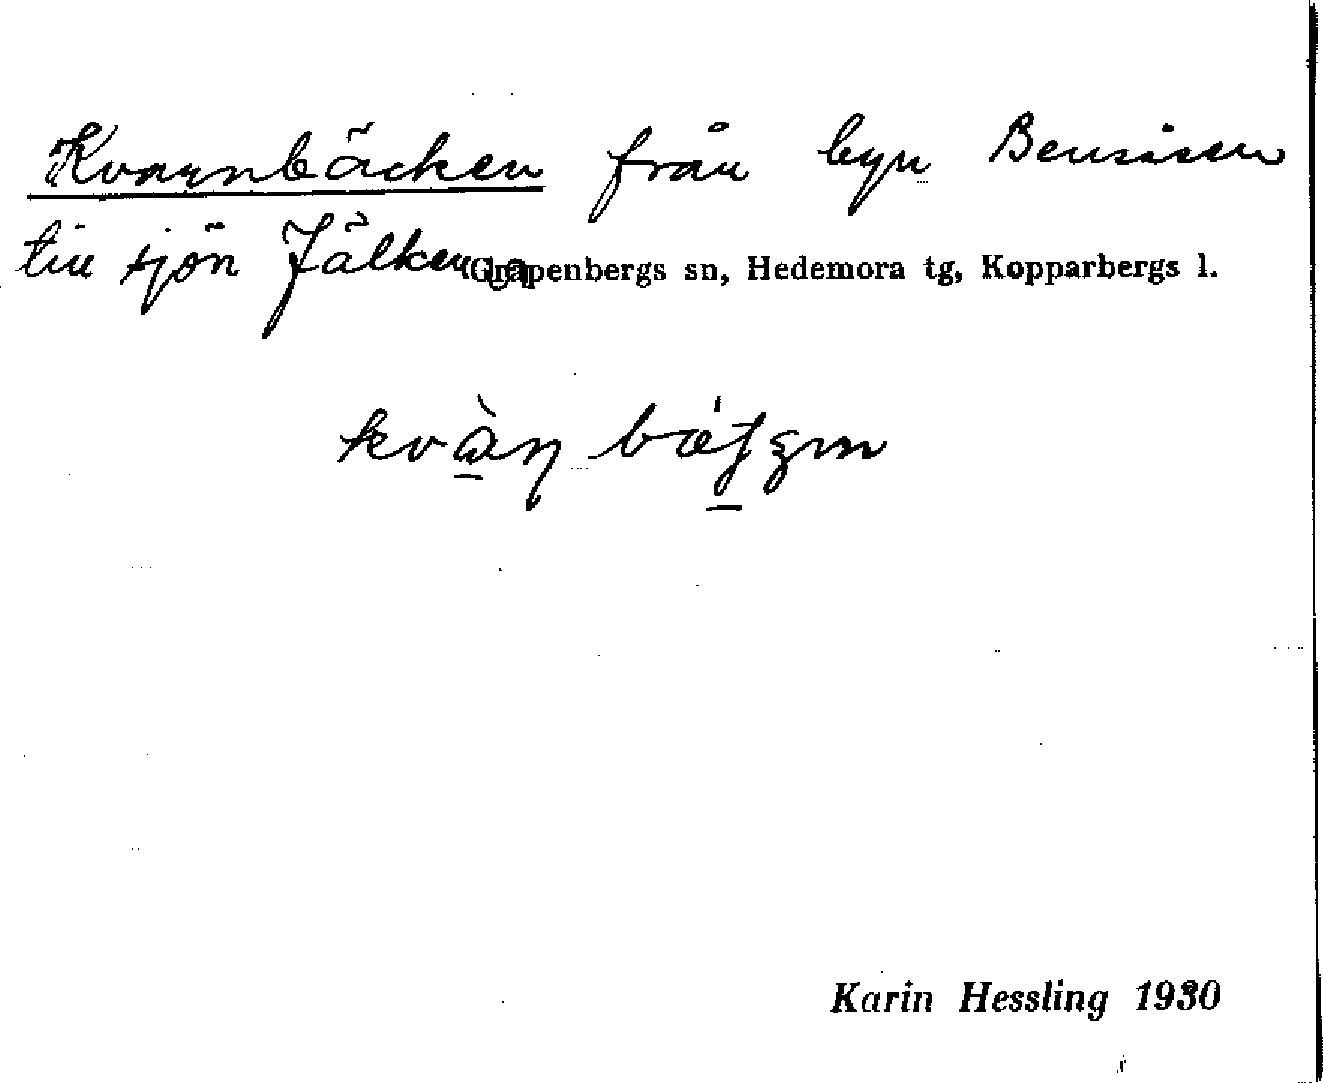 Kvarnbäcken från byn Bensisen
till sjön Jälken, Grapenbergs sn, Hedemora tg, Kopparbergs l.
Karin Hessling 1930